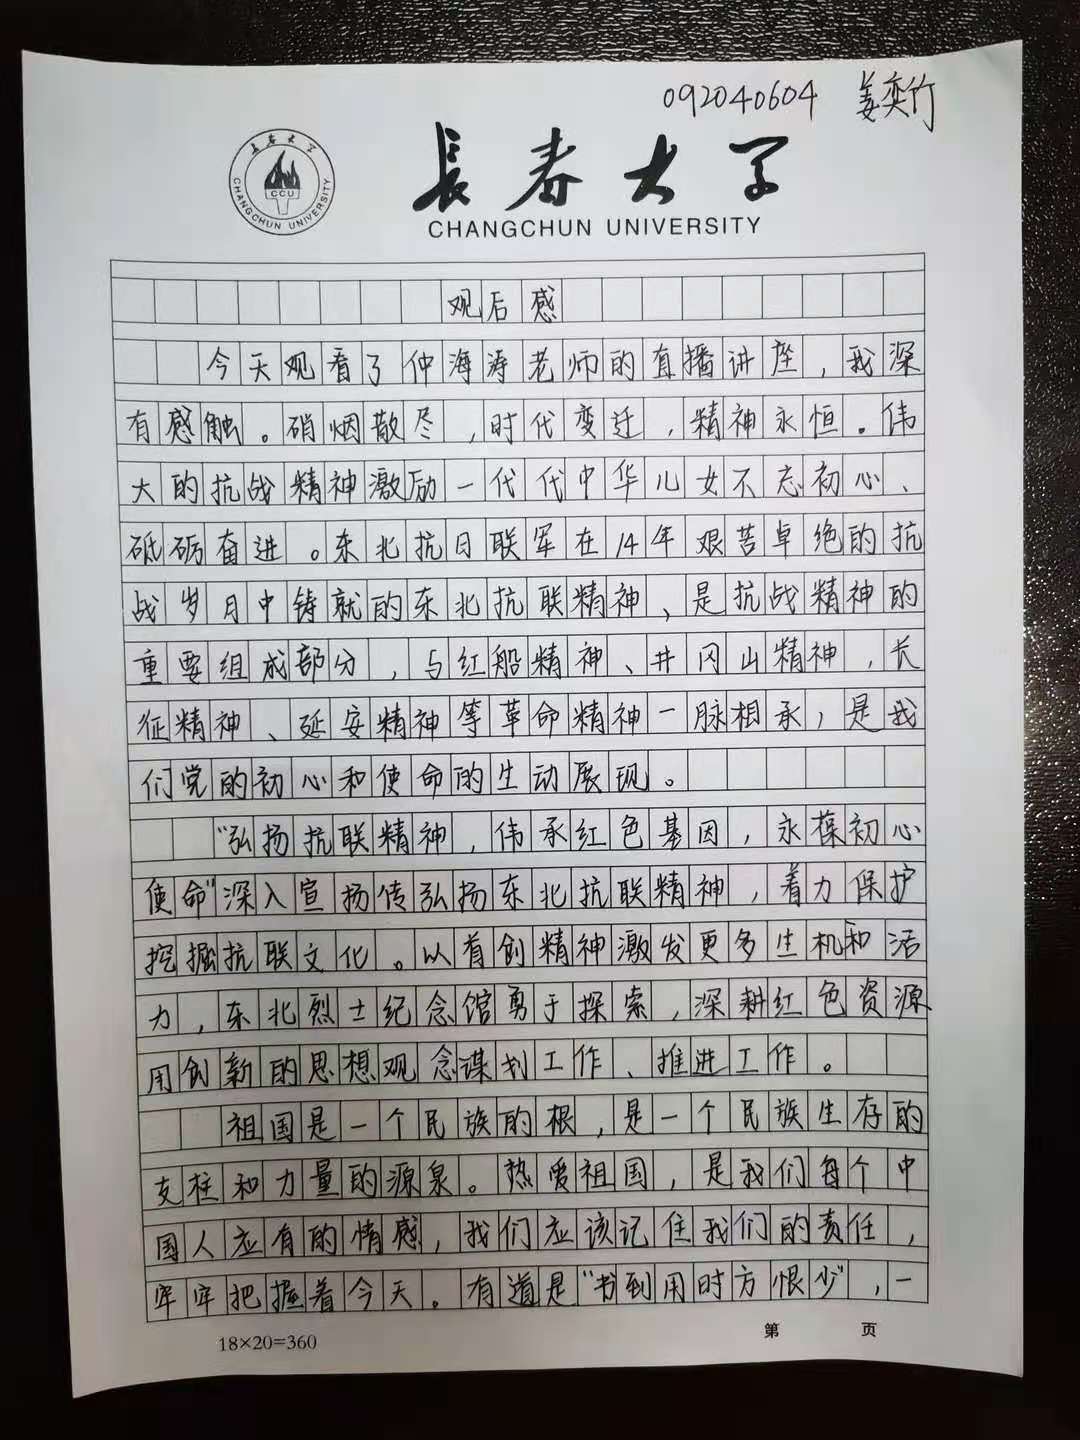 092040604 姜奕竹
長春大学
CHANGCHUN UNIVERSITY
長春大学
CCU
CHANGCHUN UNIVERSITY
观后感
今天观看了仲海涛老师的直播讲座，我深
有感触。硝烟散尽，时代变迁，精神永恒。伟
大的抗战精神激励一代代中华儿女不忘初心、
砥砺奋进。东北抗日联军在14年艰苦卓绝的抗
战岁月中铸就的东北抗联精神、是抗战精神的
重要组成部分，与红船精神、井冈山精神，长
征精神、延安精神等革命精神一脉相承，是我
们党的初心和使命的生动展现。
“弘扬抗联精神，伟承红色基因，永葆初心
使命”深入宣扬传弘扬东北抗联精神，着力保护
挖掘抗联文化。以首创精神激发更多生机和活
力，东北烈士纪念馆勇于探索，深耕红色资源
用创新的思想观念谋划工作、推进工作。
祖国是一个民族的根，是一个民族生存的
支柱和力量的源泉。热爱祖国，是我们每个中
国人应有的情感，我们应该记住我们的责任，
牢牢把握着今天。有道是“书到用时方恨少”，一
18×20=360
第 页